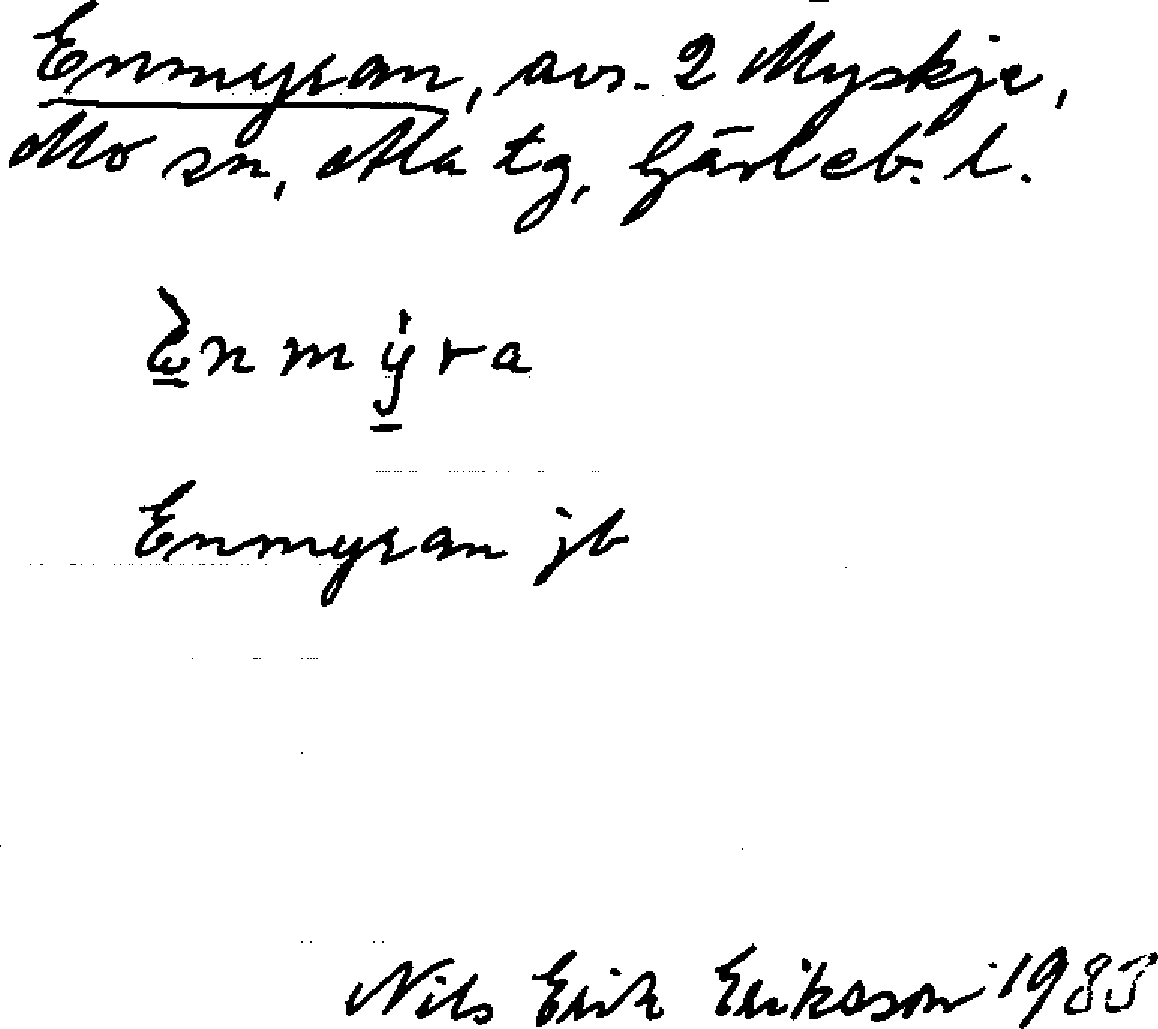 Enmyran, avs. 2 Myskje,
Mo sn, Ala tg, Gävleb. l.
ènmỳra
Enmyran jb
Nils Erik Eriksson 1983